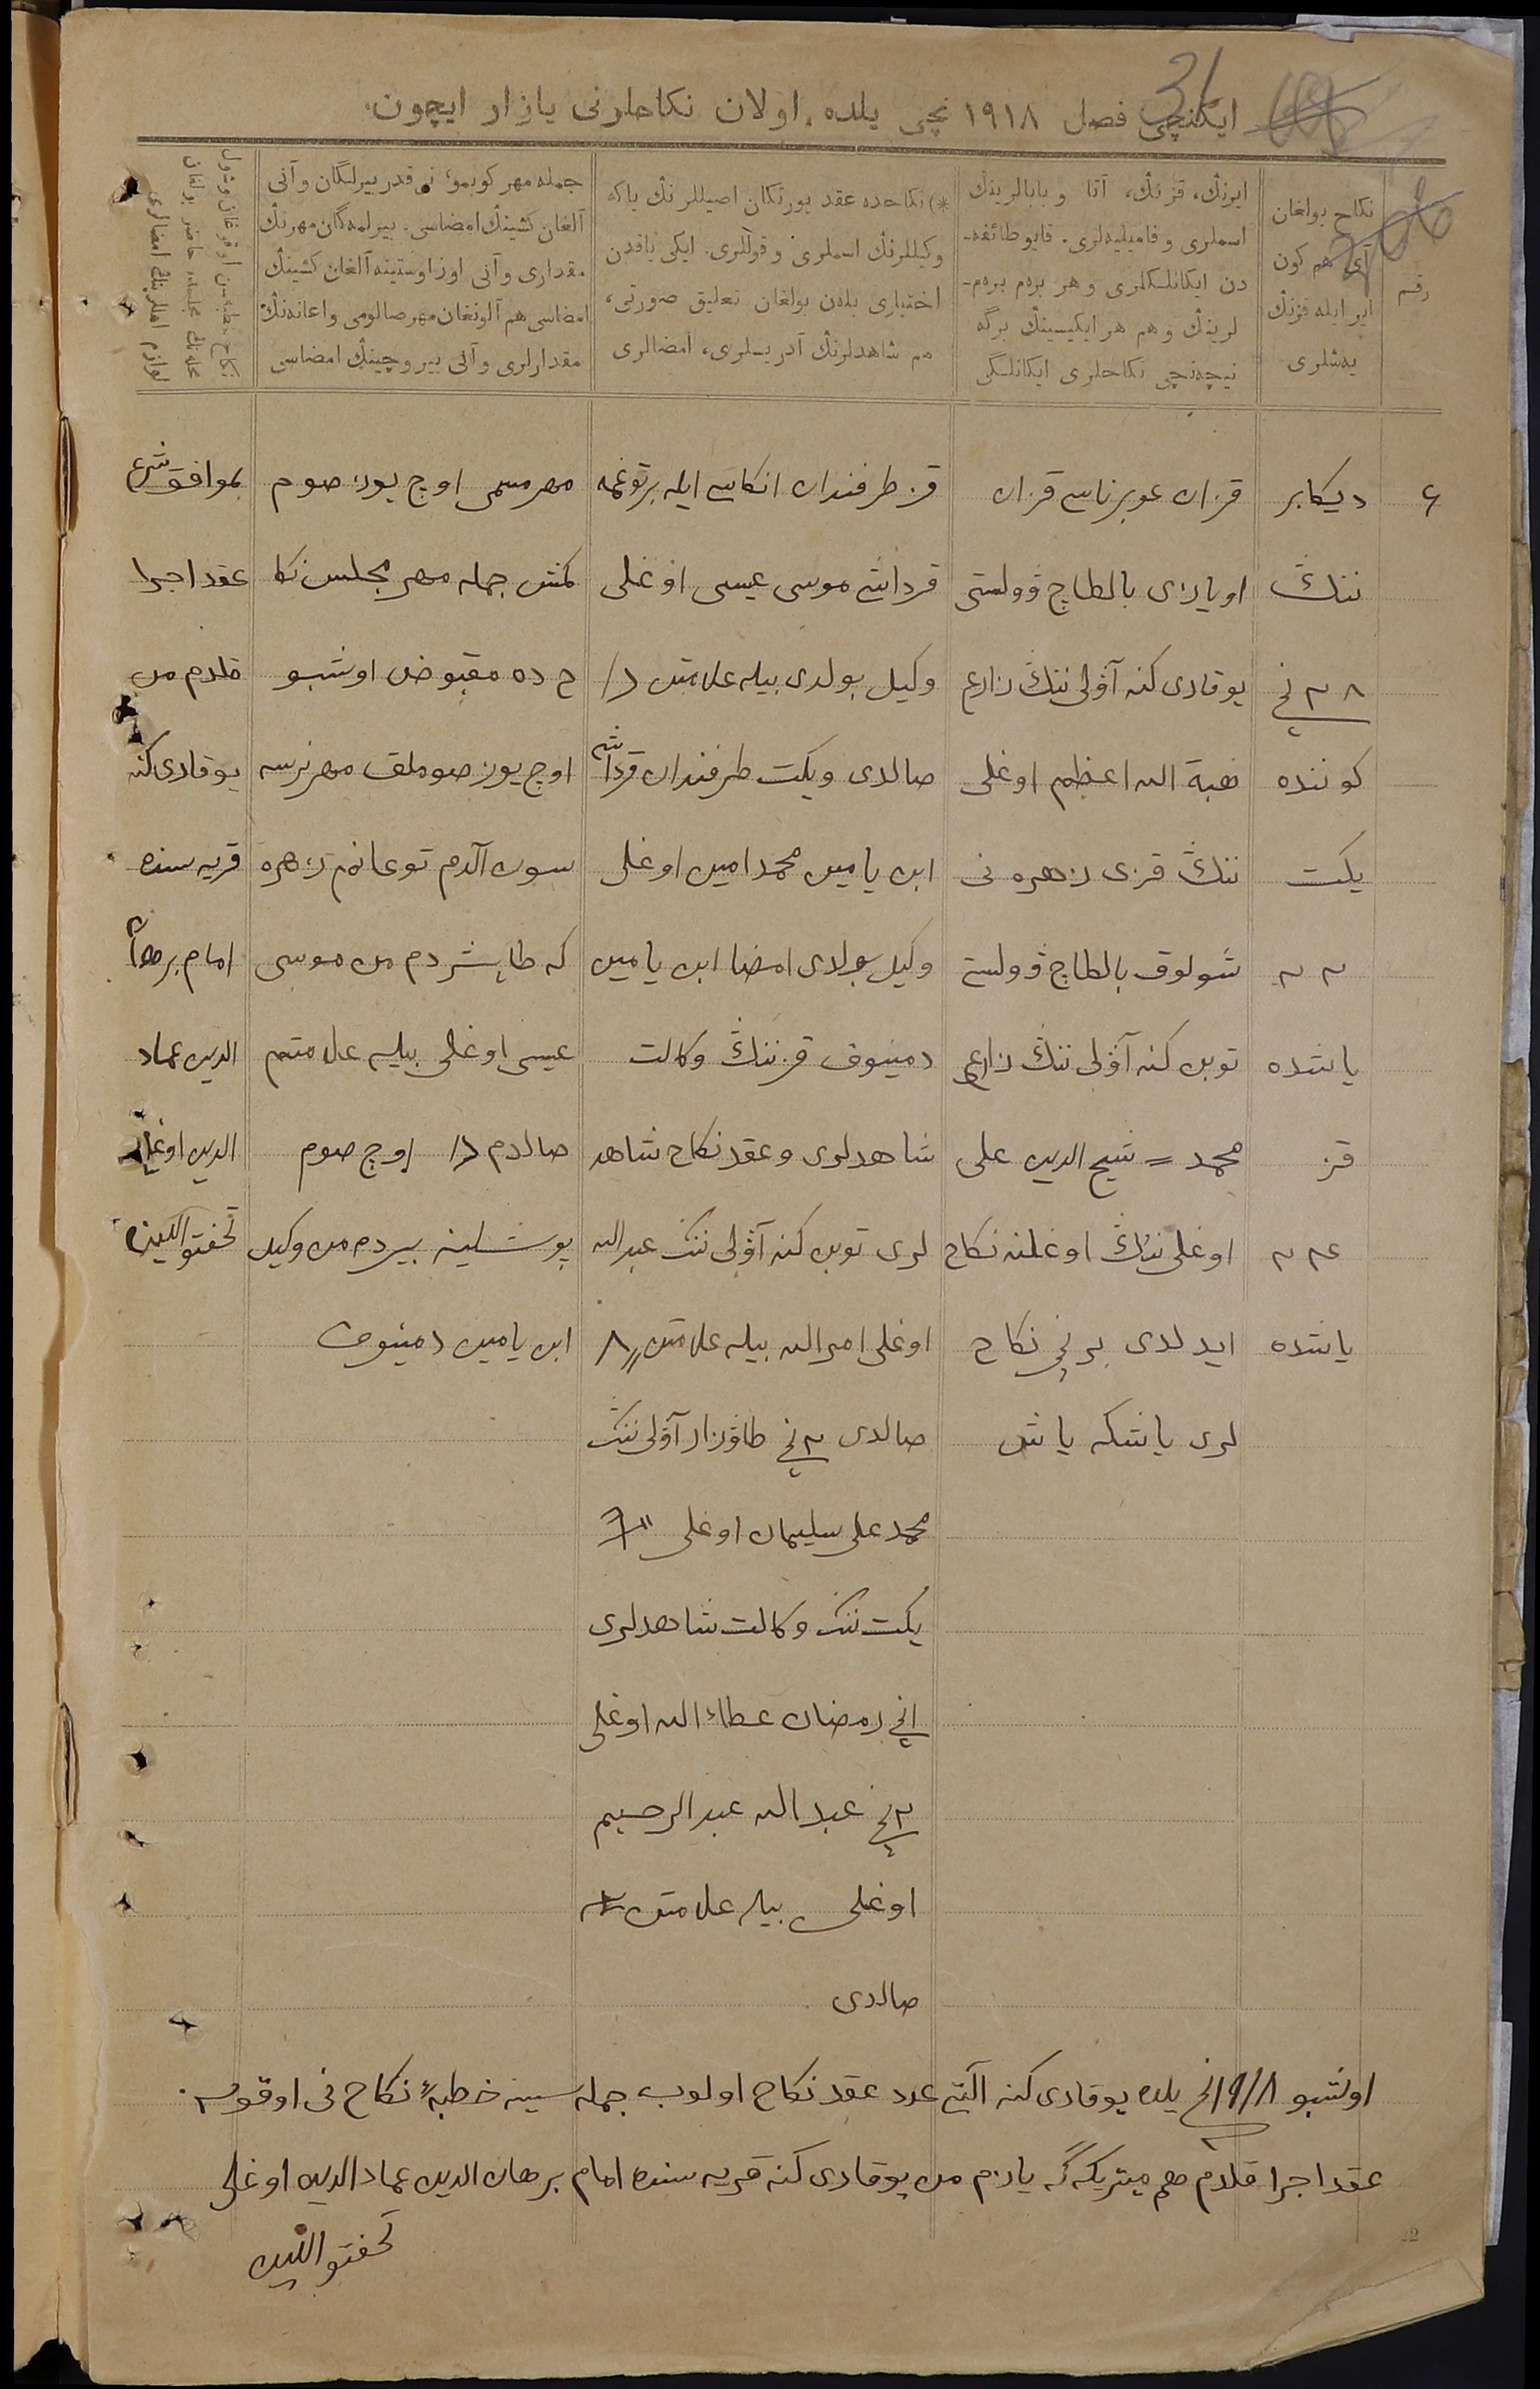 31
ایکنچی فصل ١٩١٨ نچی یلده اولان نکاحلرنی یازار ایچون
رقم
نکاح بولغان
آی هم کون
ایر ایله قزنڭ
یەشلری
ایرنڭ، قزنڭ، آتا و بابالرینڭ
اسملری و فامیلیەلری. قایو طائفە-
دن ایکانلکلری و هر برەم برەم-
لرینڭ و هم هر ایکیسینڭ برگە
نیچەنچی نکاحلری ایکانلگی
*) نکاحده عقد یورتکان اصیللرنڭ یاکە
وکیللرنڭ اسملری و قوللری. ایکی یاقدن
اختیاری بلەن بولغان تعلیق صورتی،
هم شاهدلرنڭ آدریسلری، امضالری
جمله مهر کوبمو؛ نی قدر بیرلگان و آنی
آلغان کشینڭ امضاسی. بیرلمەگان مهرنڭ
مقداری و آنی اوز اوستینه آلغان کشینڭ
امضاسی هم آلونغان مهر صالومی و اعانەنڭ
مقدارلری و آنی بیروچینڭ امضاسی
۶
دیکابر
ننڭ
٢٨ نچی
کوننده
یکت
٢٢
یاشنده
قز
٢۴
یاشنده
قزان غوبرناسی قزان
اویازی بالطاچ ڤولستی
یوقاری کنه آڤلی ننڭ زارع
هبة الله اعظم اوغلی
ننڭ قزی زهره نی
شولوق بالطاچ ڤولستی
توبن کنه آڤلی ننڭ زارع
محمد شیح الدین علی
اوغلی ننڭ اوغلنه نکاح
ایدلدی برنچی نکاح
لری یاشکه یاش
قز طرفندان انکاسی ایله برتوغمه
قرداشی موسی عیسی اوغلی
وکیل بولدی بیله علامتن
صالدی ویکت طرفندان قرداشی
ابن یامین محمد امین اوغلی
وکیل بولدی امضا ابن یامین
دمینوف قزننڭ وکالت
شاهدلری و عقد نکاح شاهد
لری توبن کنه آڤلی ننڭ عبدالله
اوغلی امرالله بیله علامتن
صالدی ٢نچی طاڤزار آڤلی ننڭ
محمد علی سلیمان اوغلی
یکت ننڭ وکالت شاهدلری
١نچی رمضان عطاء الله اوغلی
٢نچی عبدالله عبدالرحیم
اوغلی بیله علامتن
صالدی
مهر مسمی اوچ یوز صوم
کمش جمله مهر مجلس نکا
ح ده مقبوض اوشبو
اوچ یوز صوملق مهر نرسه
سون آلدم توغانم زهره
که طابشردم من موسی
عیسی اوغلی بیله علامتم
صالدم اوچ صوم
یوشلینه بیردم من وکیل
ابن یامین دمینوف
بموافق شرع
عقد اجرا
قلدم من
یوقاری کنه
قریه سنده
امام برهان
الدین عماد
الدین اوغلی
تحفتوللین
اوشبو ١٩١٨نچی یلده یوقاری کنه آلتی عدد عقد نکاح اولوب جمله سینه خطبهٔ نکاح نی اوقوب
عقد اجرا قلدم هم میتریکه گه یازدم من یوقاری کنه قریه سنده امام برهان الدین عماد الدین اوغلی
تحفتوللین